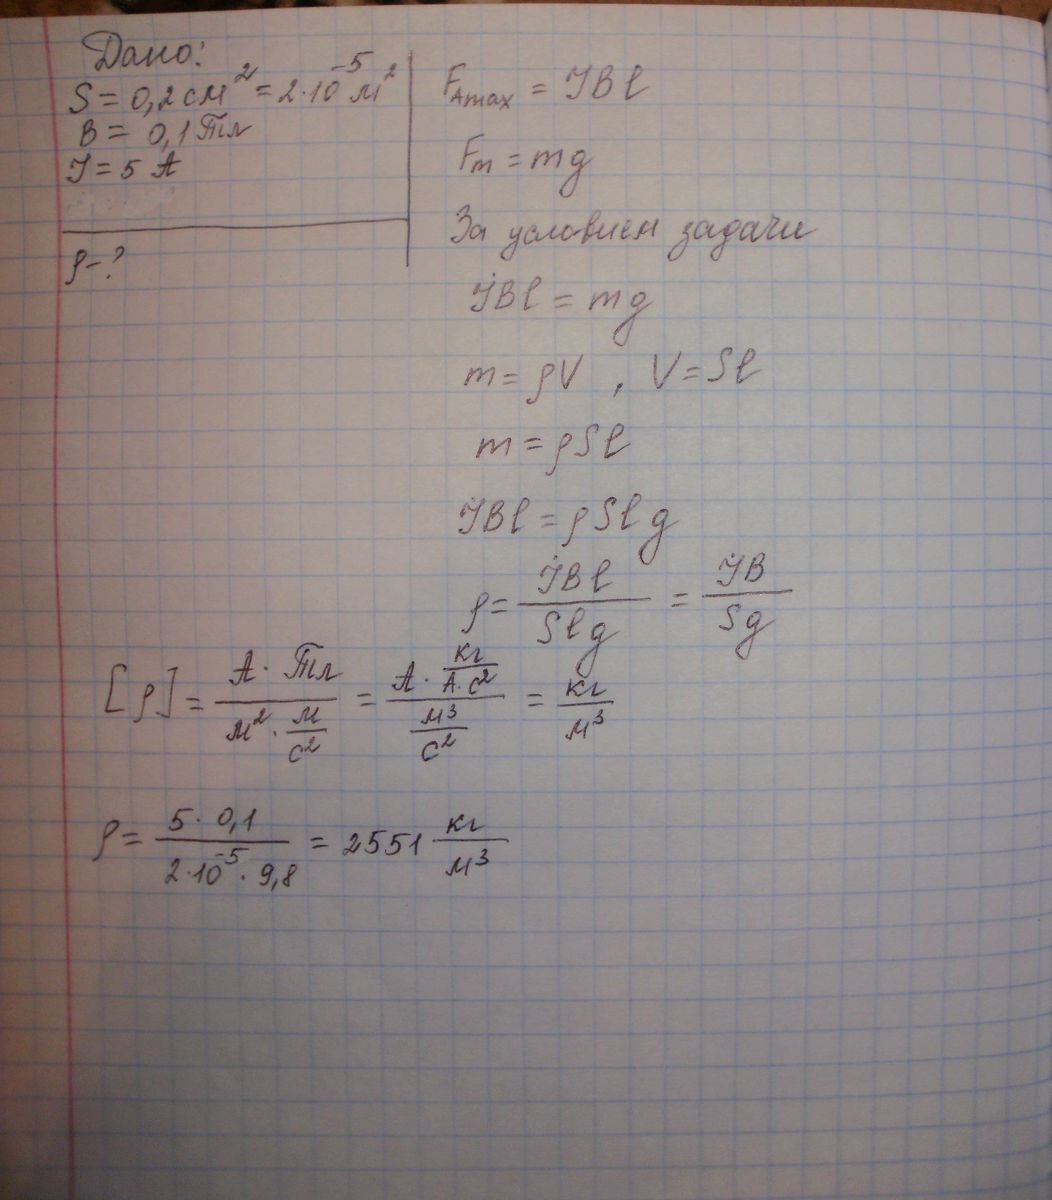 Дано:
S = 0,2 см² = 2·10⁻⁵ м²
B = 0,1 Тл
I = 5 А
ρ - ?
F_Amax = IBl
F_т = mg
За условием задачи
IBl = mg
m = ρV , V = Sl
m = ρSl
IBl = ρSlg
ρ = IBl / Slg = IB / Sg
[ρ] = А · Тл / м² · м/с² = А · кг/А·с² / м³/с² = кг/м³
ρ = 5 · 0,1 / 2·10⁻⁵ · 9,8 = 2551 кг/м³